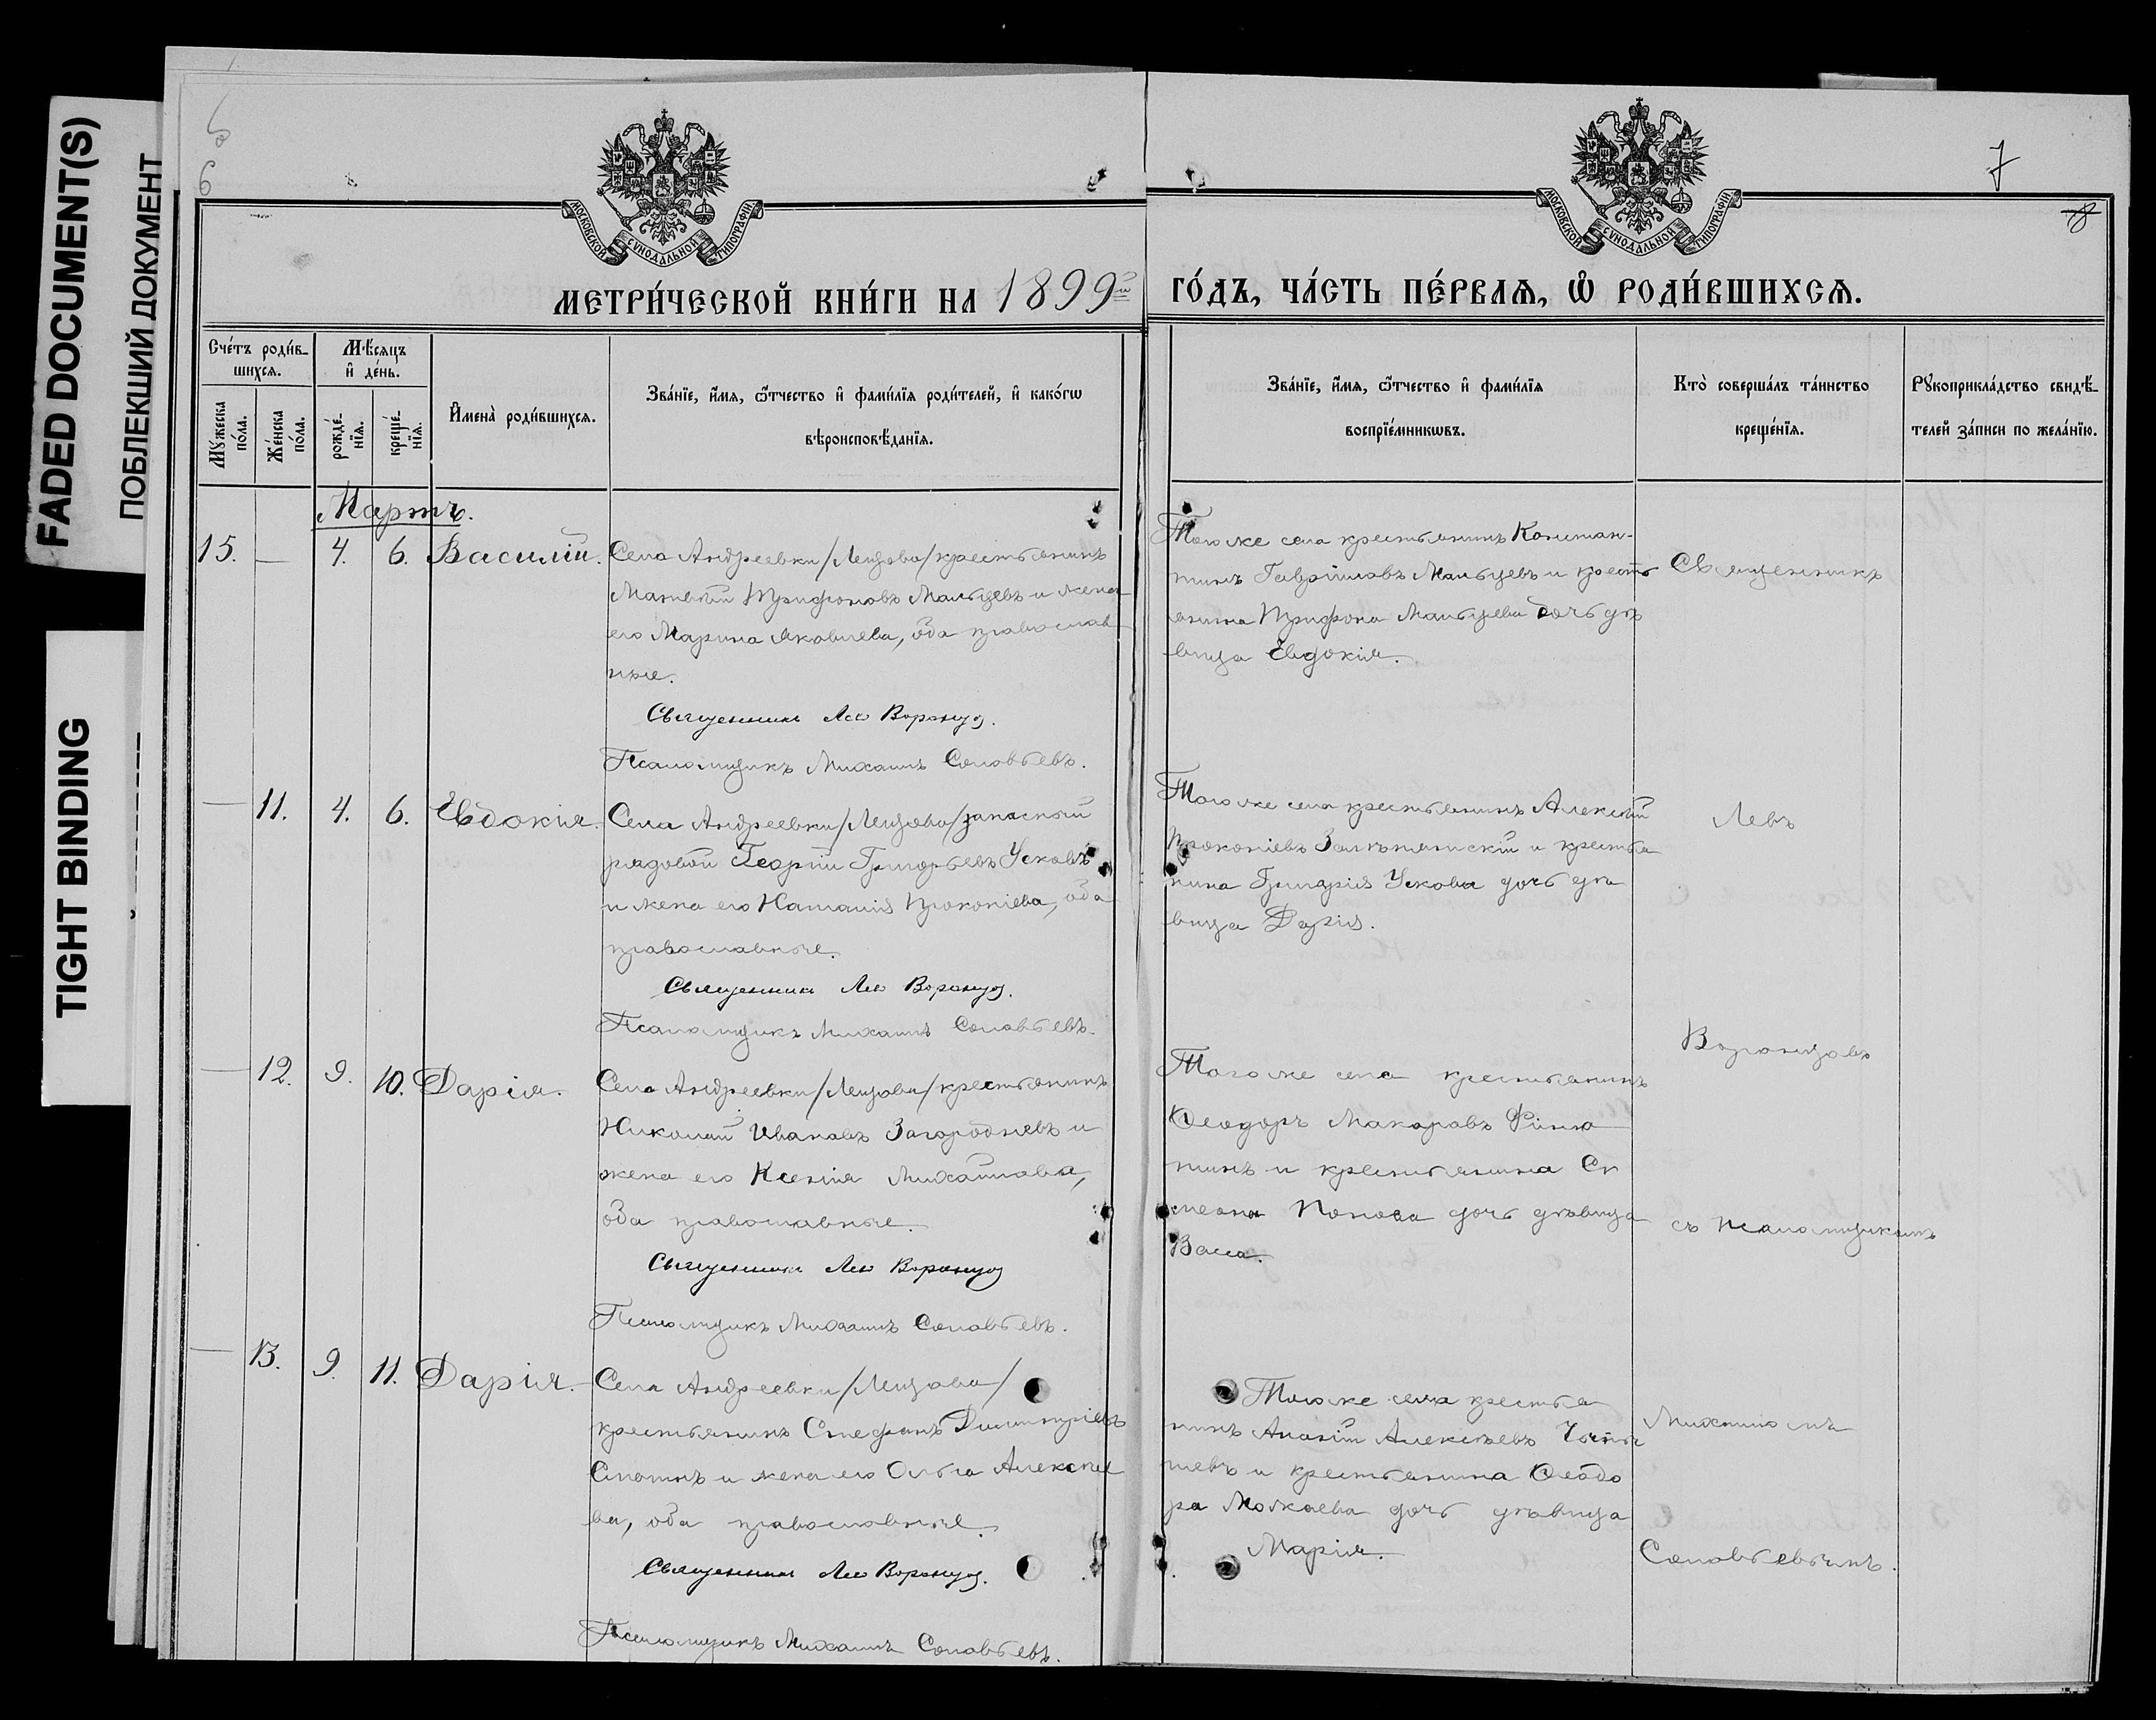 FADED DOCUMENT(S)
ПОБЛЕКШИЙ ДОКУМЕНТ
TIGHT BINDING
6
7
МОСКОВСКОЙ СУНОДАЛЬНОЙ ТИПОГРАФІИ
МОСКОВСКОЙ СУНОДАЛЬНОЙ ТИПОГРАФІИ
МЕТРИ́ЧЕСКОЙ КНИ́ГИ НА 1899й ГО́ДЪ, ЧА́СТЬ ПЕ́РВАѦ, Ѡ҆ РОДИ́ВШИХСѦ.
Сче́тъ роди́в-
шихсѧ.
Мѣ́сѧцъ
и҆ де́нь.
Мꙋ́жеска
по́ла.
Же́нска
по́ла.
рожде́-
нїѧ.
креще́-
нїѧ.
И҆мена̀ роди́вшихсѧ.
Зва́нїе, и҆́мѧ, ѻ҆́тчество и҆ фами́лїѧ роди́телей, и҆ како́гѡ
вѣроисповѣ́данїѧ.
Зва́нїе, и҆́мѧ, ѻ҆́тчество и҆ фами́лїѧ
воспрїе́мникѡвъ.
Кто̀ соверша́лъ та́инство
креще́нїѧ.
Рꙋкоприкла́дство свидѣ́-
телей за́писи по жела́нїю.
Мартъ.
15. — 4. 6. Василій.
Села Андреевки /Лещова/ крестьянинъ
Матвѣй Трифоновъ Мальцевъ и жена
его Марина Яковлева, оба православ
ные.
Священникъ Лев Воронцов.
Псаломщикъ Михаилъ Соловьевъ.
Того же села крестьянинъ Констан-
тинъ Гавріиловъ Мальцевъ и кресть
янина Трифона Мальцева дочь дѣ
вица Евдокія.
Священникъ
— 11. 4. 6. Евдокія.
Села Андреевки /Лещова/ запасный
рядовой Георгій Григорьевъ Усковъ
и жена его Наталія Прокопіева, оба
православные.
Священникъ Лев Воронцов.
Псаломщикъ Михаилъ Соловьевъ.
Того же села крестьянинъ Алексѣй
Прокопіевъ и крестья
нина Григорія Ускова дочь дѣ
вица Дарія.
Левъ
— 12. 9. 10. Дарія.
Села Андреевки /Лещова/ крестьянинъ
Николай Ивановъ Загородневъ и
жена его Ксенія Михайлова,
оба православные.
Священникъ Лев Воронцов
Псаломщикъ Михаилъ Соловьевъ.
Того же села крестьянинъ
Ѳеодоръ Макаровъ Филю
нинъ и крестьянина Си
меона Попова дочь дѣвица
Васса.
Воронцовъ
съ псаломщикомъ
— 13. 9. 11. Дарія.
Села Андреевки /Лещова/
крестьянинъ Стефанъ Димитріевъ
и жена его Ольга Алексѣе
ва, оба православные.
Священникъ Лев Воронцов.
Псаломщикъ Михаилъ Соловьевъ.
Того же села крестья
нинъ Алексѣевъ
и крестьянина Ѳеодо
ра Можаева дочь дѣвица
Марія.
Михаиломъ
Соловьевымъ.